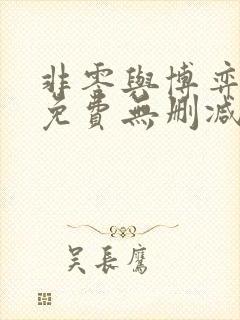 非零與博弈
免費無刪減
吳長鷹